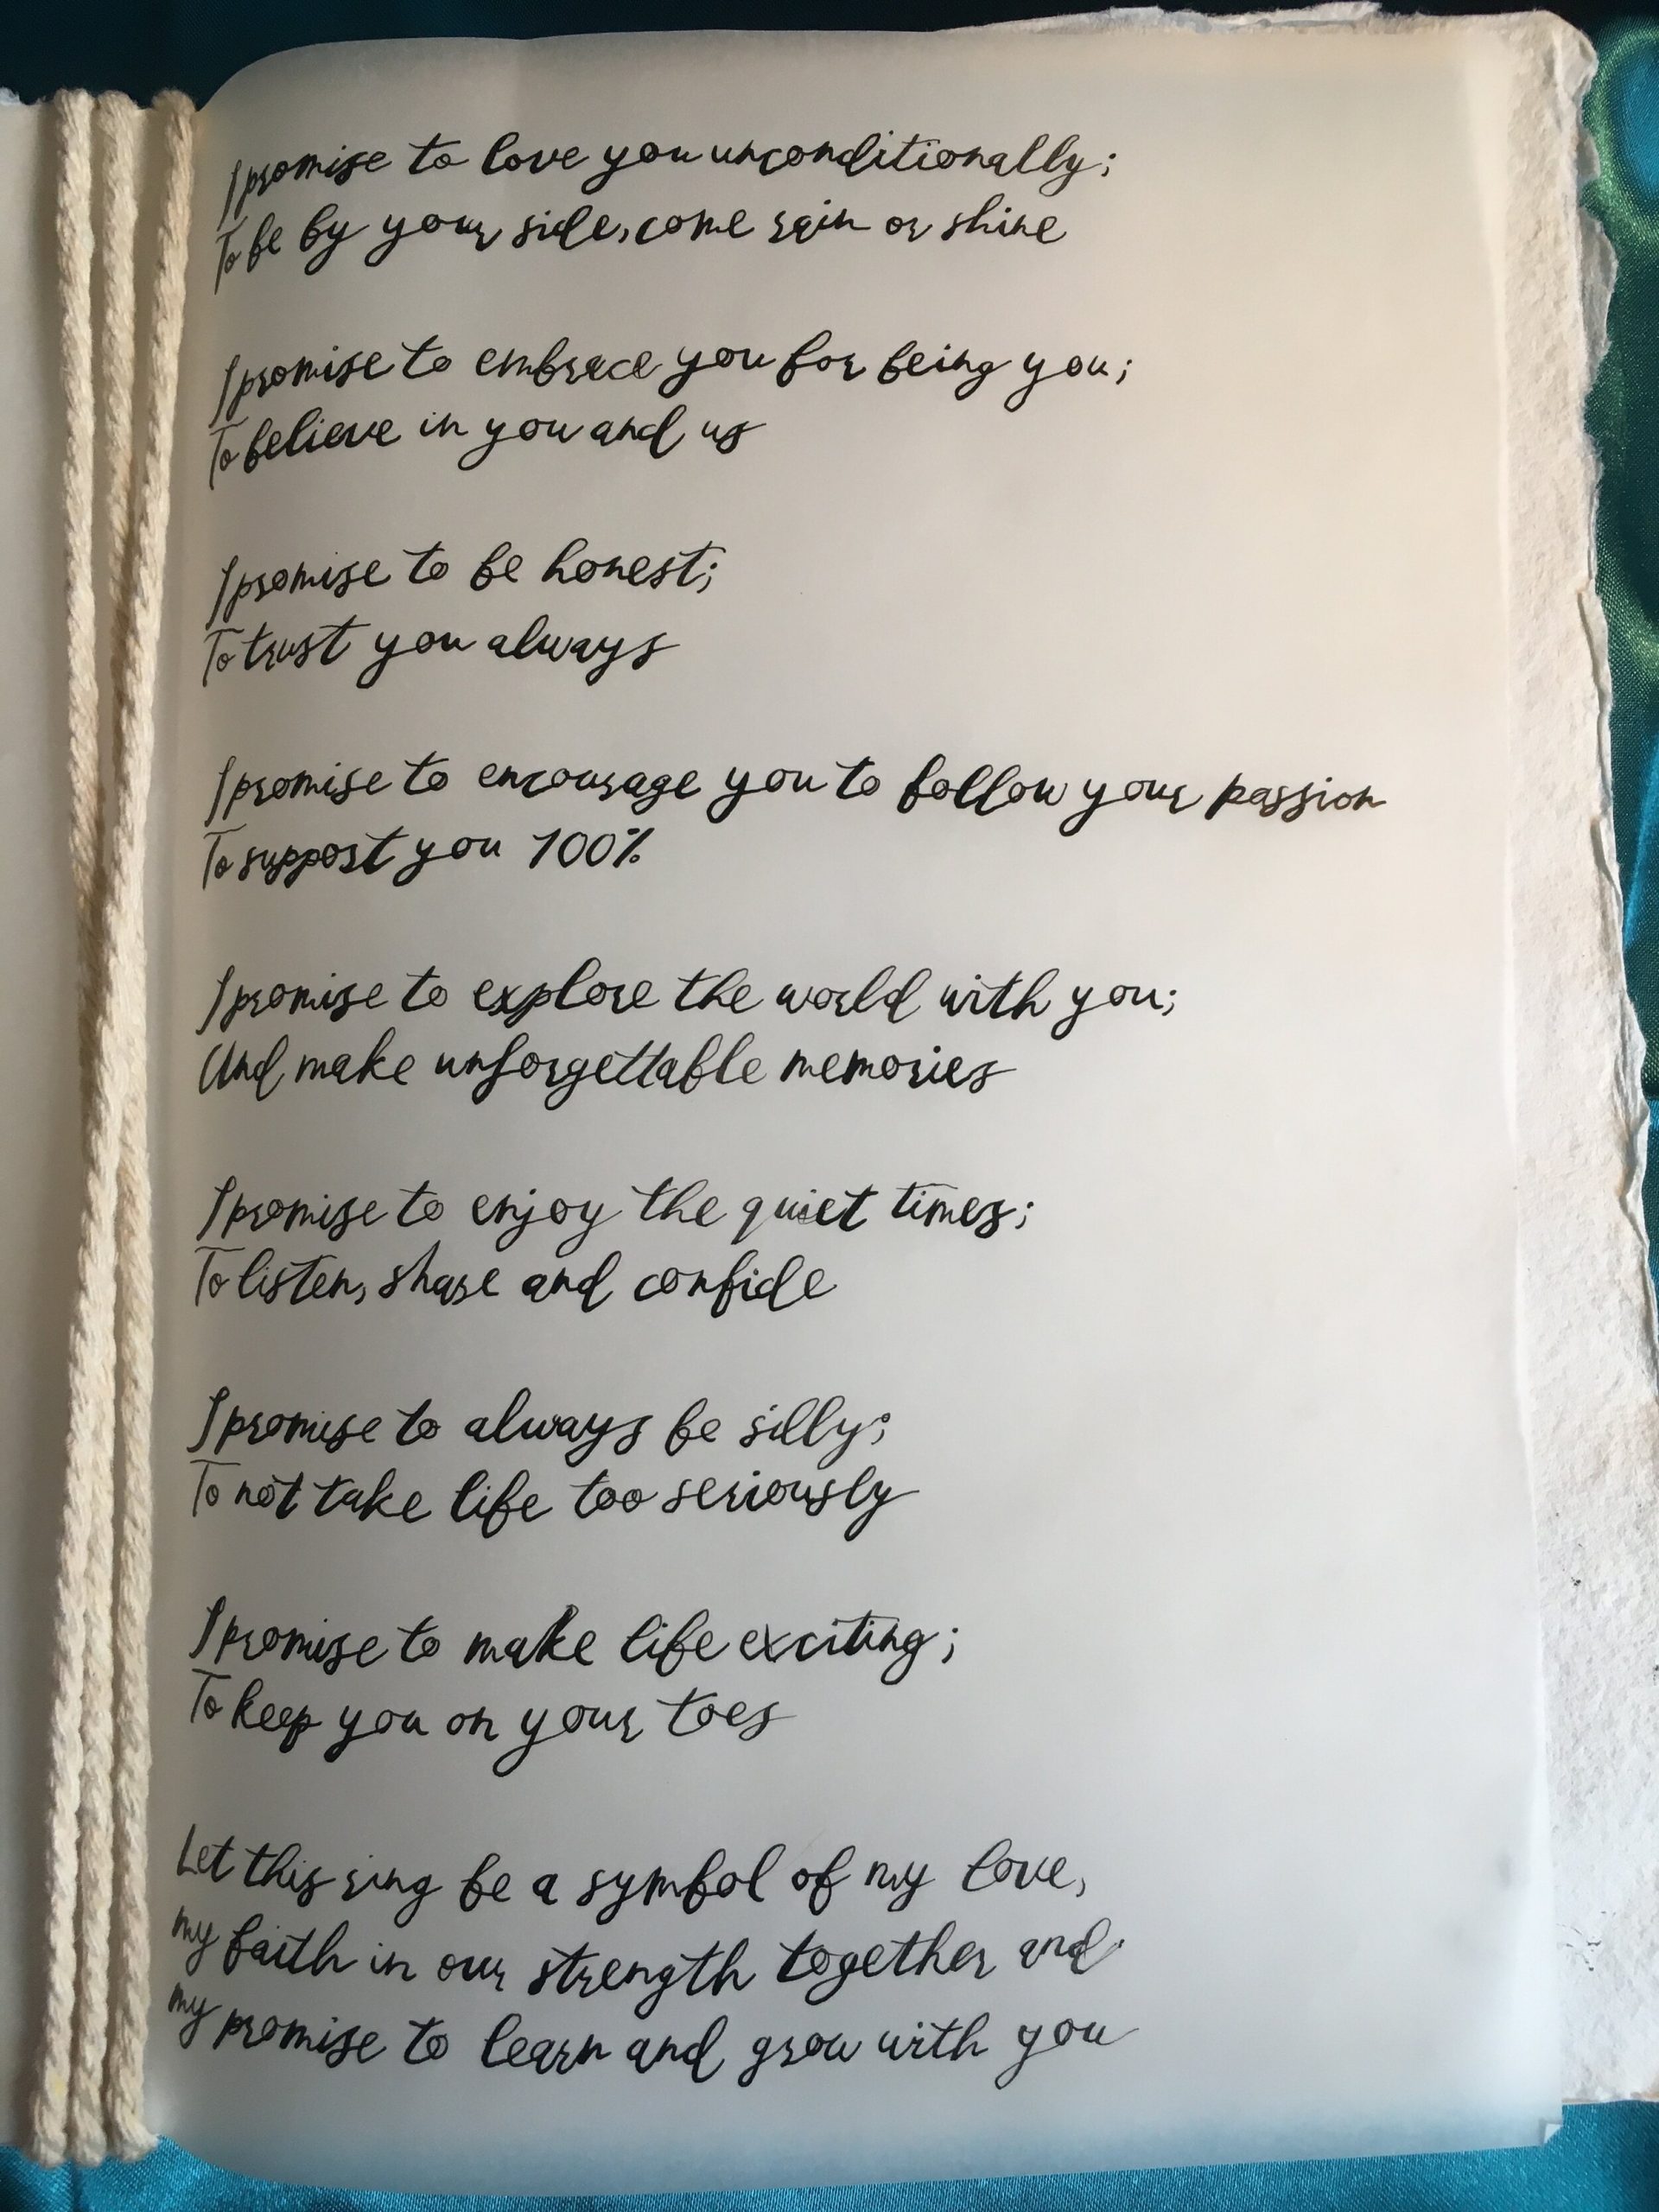 I promise to love you unconditionally;
To be by your side, come rain or shine
I promise to embrace you for being you;
To believe in you and us
I promise to be honest;
To trust you always
I promise to encourage you to follow your passion
To support you 100%
I promise to explore the world with you;
And make unforgettable memories
I promise to enjoy the quiet times;
To listen, share and confide
I promise to always be silly;
To not take life too seriously
I promise to make life exciting;
To keep you on your toes
Let this ring be a symbol of my love,
my faith in our strength together and
my promise to learn and grow with you